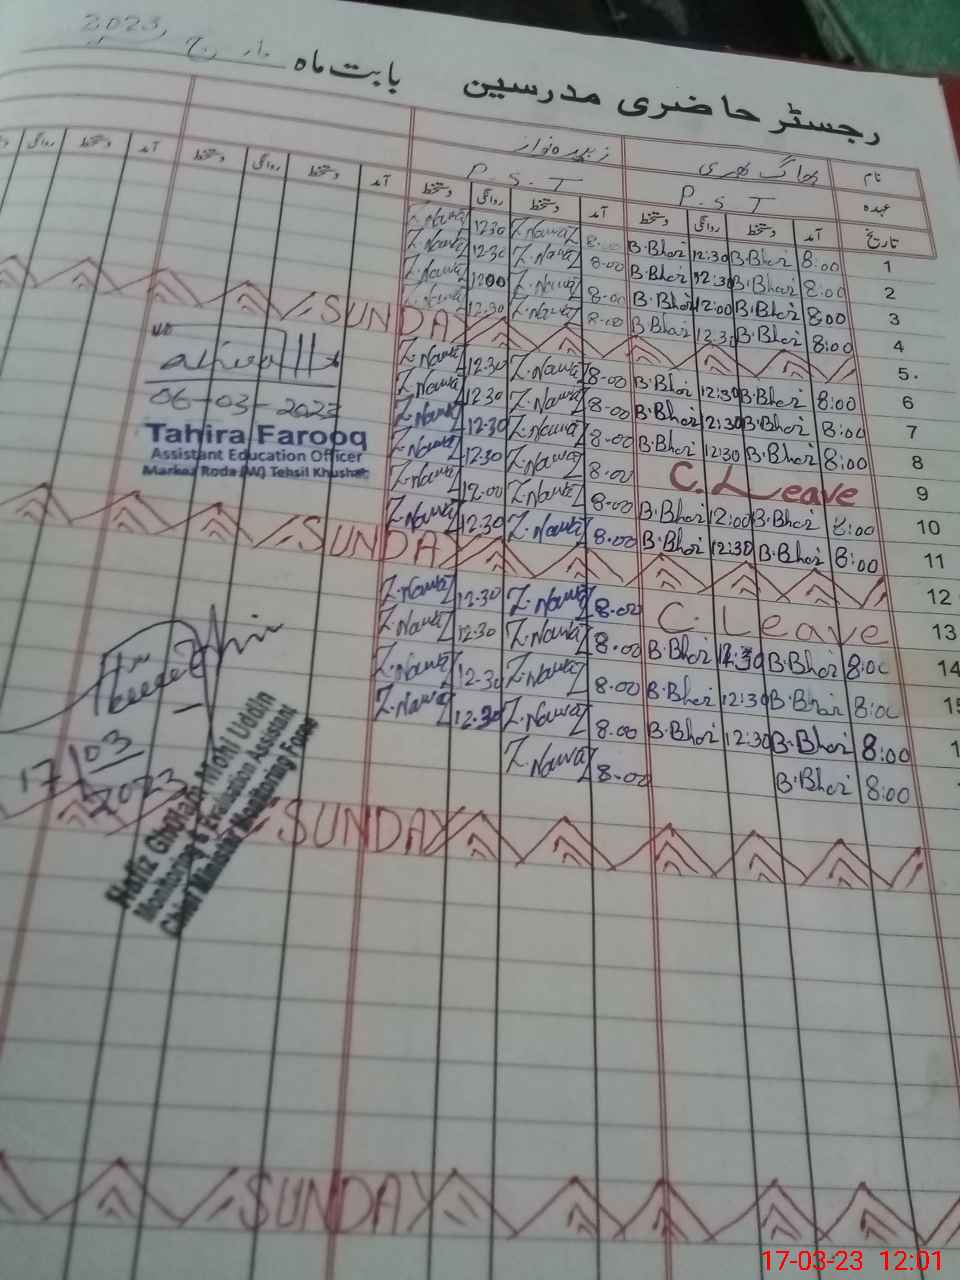 رجسٹر حاضری مدرسین بابت ماہ مارچ 2023
نام بھاگ بھری زبیدہ نواز
عہدہ P.S.T P.S.T
تاریخ آمد دستخط روانگی دستخط آمد دستخط روانگی دستخط آمد دستخط روانگی دستخط آمد دستخط روانگی
1 8:00 B.Bhari 12:30 B.Bhari 8-00 Z.Nawaz 12.30 Z.Nawaz
2 8:00 B.Bhari 12:30 B.Bhari 8-00 Z.Nawaz 12.30 Z.Nawaz
3 8:00 B.Bhari 12:00 B.Bhari 8-00 Z.Nawaz 12.00 Z.Nawaz
4 8:00 B.Bhari 12:30 B.Bhari 8-00 Z.Nawaz 12.30 Z.Nawaz
5. SUNDAY
6 8:00 B.Bhari 12:30 B.Bhari 8-00 Z.Nawaz 12.30 Z.Nawaz
7 8:00 B.Bhari 12:30 B.Bhari 8-00 Z.Nawaz 12.30 Z.Nawaz
8 8:00 B.Bhari 12:30 B.Bhari 8-00 Z.Nawaz 12.30 Z.Nawaz
9 C. Leave 8.00 Z.Nawaz 12.30 Z.Nawaz
10 8:00 B.Bhari 12:00 B.Bhari 8.00 Z.Nawaz 12.00 Z.Nawaz
11 8:00 B.Bhari 12:30 B.Bhari 8.00 Z.Nawaz 12.30 Z.Nawaz
12 SUNDAY
13 C. Leave 8.00 Z.Nawaz 12.30 Z.Nawaz
14 8:00 B.Bhari 12:30 B.Bhari 8.00 Z.Nawaz 12.30 Z.Nawaz
15 8:00 B.Bhari 12:30 B.Bhari 8.00 Z.Nawaz 12.30 Z.Nawaz
1 8:00 B.Bhari 12:30 B.Bhari 8.00 Z.Nawaz 12.30 Z.Nawaz
8:00 B.Bhari 8.00 Z.Nawaz
SUNDAY
SUNDAY
06-03-2023
Tahira Farooq
Assistant Education Officer
Markaz Roda (W) Tehsil Khushab
17/03
2023
Hafiz Ghulam Mohi Uddin
Monitoring & Evaluation Assistant
Chief Minister Monitoring Force
17-03-23 12:01